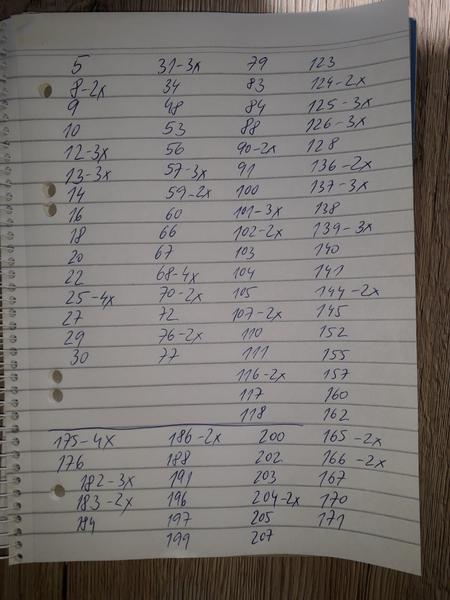 5 31-3x 79 123
8-2x 34 83 124-2x
9 48 84 125-3x
10 53 88 126-3x
12-3x 56 90-2x 128
13-3x 57-3x 91 136-2x
14 59-2x 100 137-3x
16 60 101-3x 138
18 66 102-2x 139-3x
20 67 103 140
22 68-4x 104 141
25-4x 70-2x 105 144-2x
27 72 107-2x 145
29 76-2x 110 152
30 77 111 155
116-2x 157
117 160
118 162
175-4x 186-2x 200 165-2x
176 188 202 166-2x
182-3x 191 203 167
183-2x 196 204-2x 170
184 197 205 171
199 207